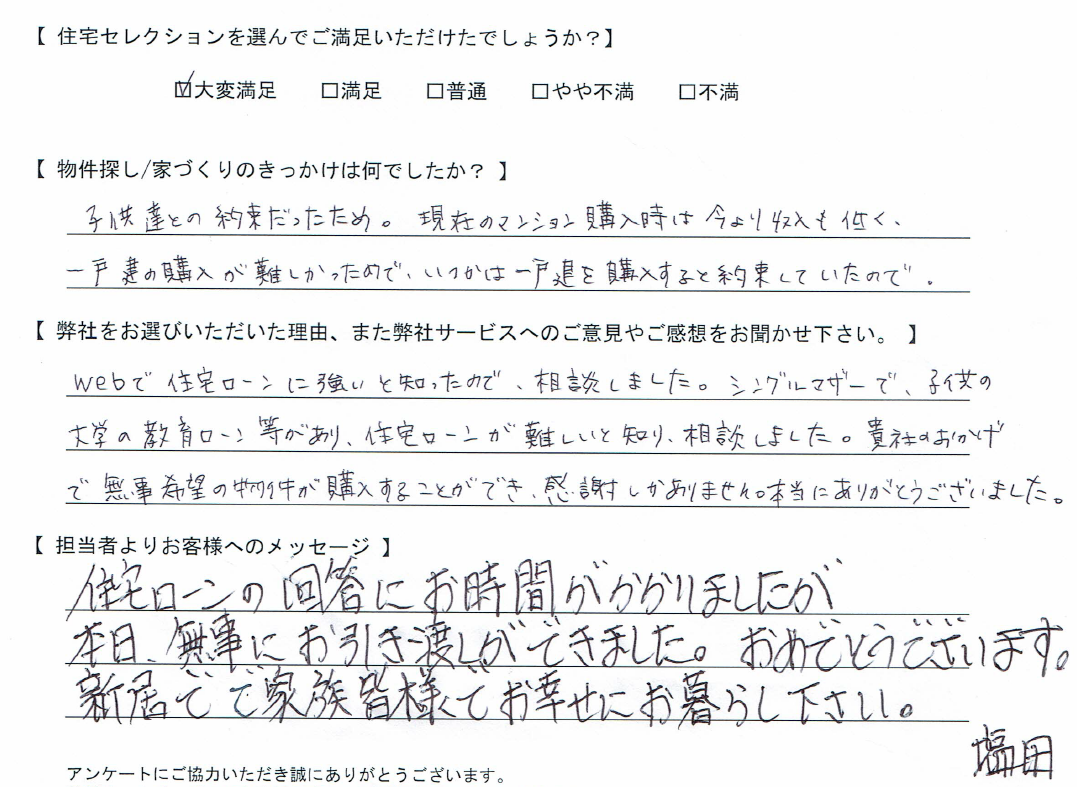 【 住宅セレクションを選んでご満足いただけたでしょうか？】
☑大変満足 □満足 □普通 □やや不満 □不満
【 物件探し/家づくりのきっかけは何でしたか？ 】
子供達との約束だったため。現在のマンション購入時は今より収入も低く、
一戸建の購入が難しかっためで、いつかは一戸建を購入すると約束していたので。
【 弊社をお選びいただいた理由、また弊社サービスへのご意見やご感想をお聞かせ下さい。 】
webで住宅ローンに強いと知ったので、相談しました。シングルマザーで、子供の
大学の教育ローン等があり、住宅ローンが難しいと知り、相談しました。貴社のおかげ
で無事希望の物件が購入することができ、感謝しかありません。本当にありがとうございました。
【 担当者よりお客様へのメッセージ 】
住宅ローンの回答にお時間がかかりましたが
本日、無事にお引き渡しができました。おめでとうございます。
新居でご家族皆様でお幸せにお暮らし下さい。
塩田
アンケートにご協力いただき誠にありがとうございます。